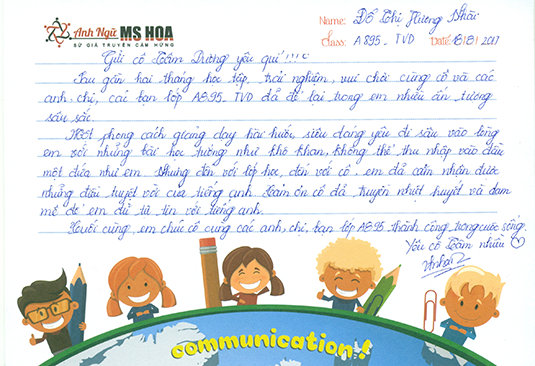 Anh Ngữ MS HOA
SỨ GIẢ TRUYỀN CẢM HỨNG
Name: Đỗ Thị Hương Nhài
Class: A895 - TVD Date: 18/8/2017
Gửi cô Tâm Dương yêu quí !!!
Sau gần hai tháng học tập, trải nghiệm, vui chơi cùng cô và các
anh, chị, các bạn lớp A895-TVD đã để lại trong em nhiều ấn tượng
sâu sắc.
Một phong cách giảng dạy hài hước, siêu đáng yêu đi sâu vào lòng
em với những bài học tưởng như khô khan, không thể thu nhập vào đầu
một đứa như em. Nhưng đến với lớp học, đến với cô, em đã cảm nhận được
những điều tuyệt vời của tiếng anh. Cảm ơn cô đã truyền nhiệt huyết và đam
mê để em đủ tự tin với tiếng anh.
Cuối cùng, em chúc cô cùng các anh, chị, bạn lớp A895 thành công trong cuộc sống.
Yêu cô Tâm nhiều
communication!